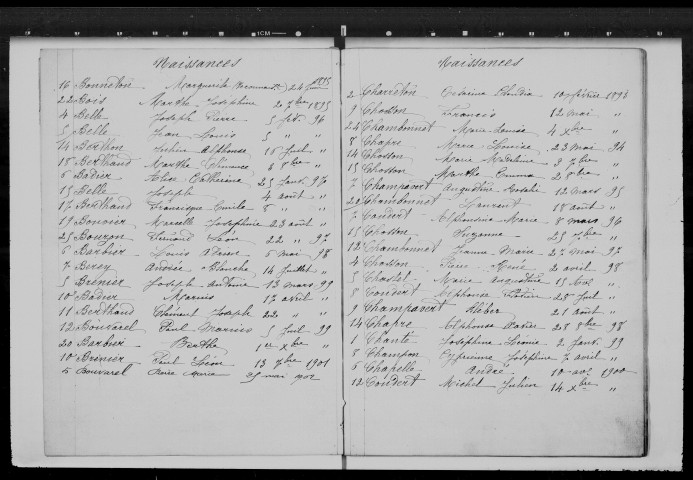 Naissances
16 Bonneton Marguerite 24 Juin 1895
22 Bois Marthe Joséphine 2 7bre 1895
4 Belle Joseph Pierre 5 fév. 96
5 Belle Jean Louis 5 " "
14 Berthon Julien Alphonse 16 Juil "
18 Berthaud Marthe Clémence 6 8bre "
6 Badier Elise Catherine 25 Janv. 97
15 Belle Joseph 4 août "
17 Berthaud Françisque Emile 8 " "
19 Bonvier Marcelle Joséphine 23 août "
25 Bouzon Fernand Léon 22 " 97
6 Barbier Louis 6 mai 98
7 Berey Andrée Blanche 14 Juillet "
5 Brenier Joseph Antoine 13 mars 99
10 Badier Marius 17 avril "
11 Berthaud Clément Joseph 22 " "
12 Bouvarel Paul Marius 5 Juil 99
20 Barbier Berthe xbre "
10 Brenier Paul Léon 13 7bre 1901
5 Bouvarel Marie 25 mai 902
Naissances
2 Charreton Claudia 10 février 1893
9 Chosson Francis 12 mai "
24 Chambonnet Marie Louise 4 xbre "
8 Chapre Marie Louise 23 mai 94
14 Chosson Marie Martine 3 7bre "
15 Chosson Marthe Emma 2 8bre "
7 Champavert Augustine Rosalie 12 mars 95
22 Chambonnet Laurent 18 août "
7 Coudert Alphonsine Marie 8 mars 96
15 Chosson Suzanne 25 7bre "
12 Chambonnet Jeanne Marie 27 mai 97
4 Chosson Pierre René 2 avril 98
5 Chastel Marie Augustine 15 avl "
8 Coudert Alphonse 28 Juil "
9 Champavert Kléber 21 août "
14 Chapre Alphonse Xavier 28 8bre 98
1 Chante Joséphine Léonie 2 Janv. 99
8 Champon Cyprienne Joséphine 7 avril "
6 Chapelle André 10 avl 1900
12 Coudert Michel Julien 14 xbre "